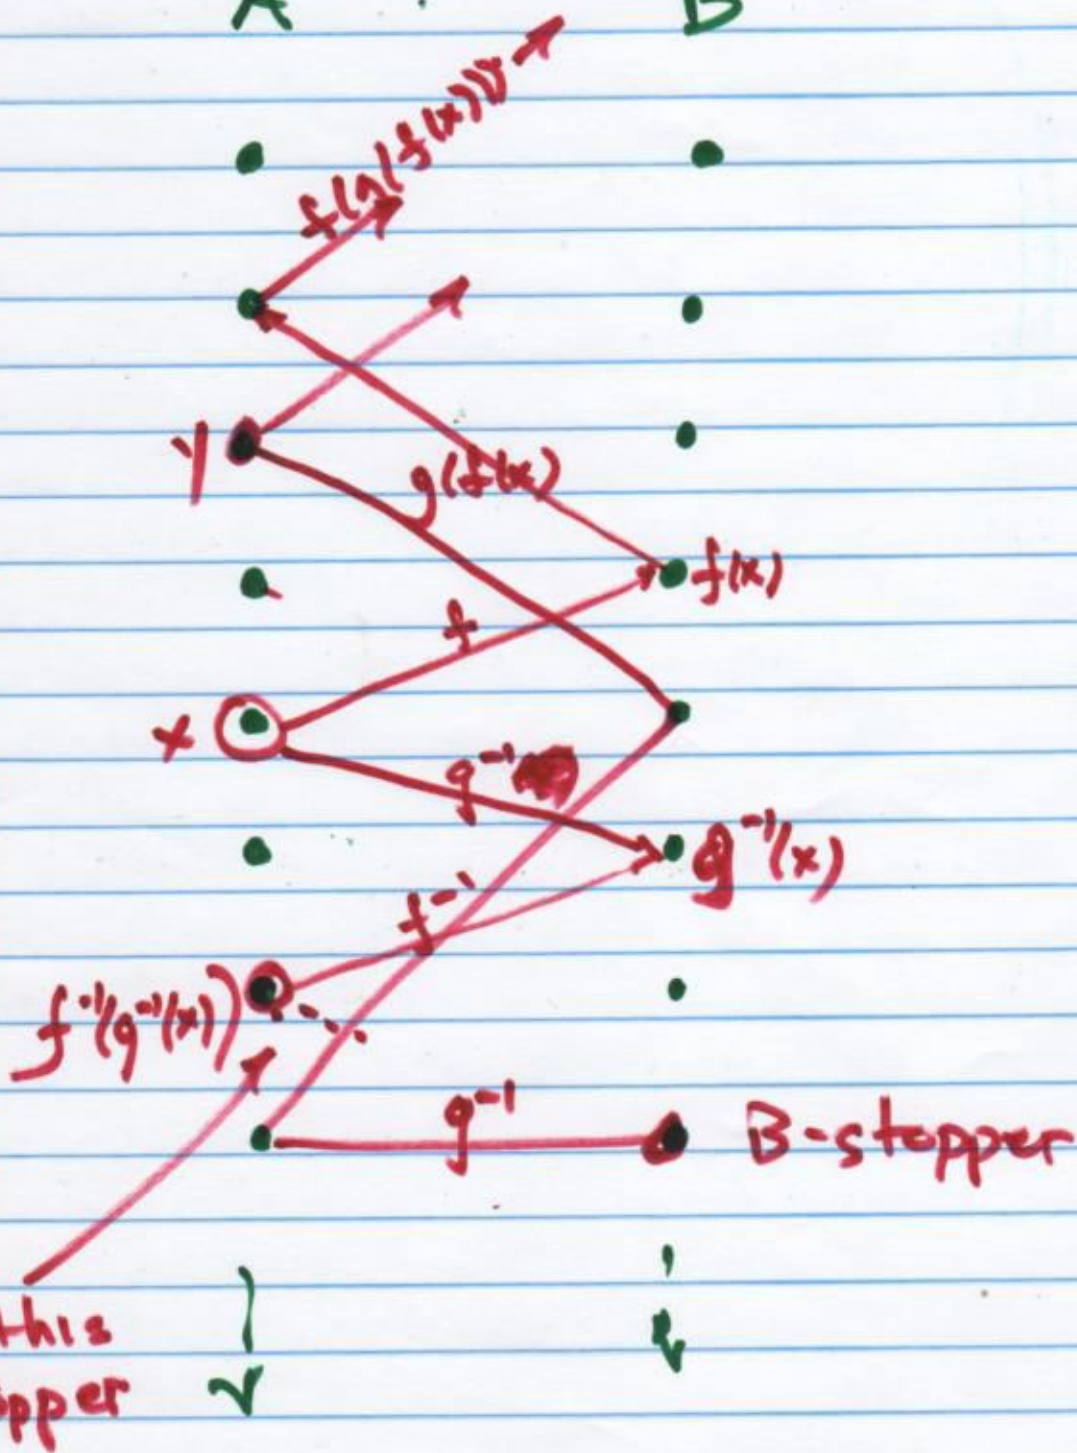 A B
f(g(f(x)))
y
g(f(x)
f(x)
f
x
g⁻¹
g⁻¹(x)
f⁻¹
f⁻¹(g⁻¹(x))
g⁻¹
B-stopper
this